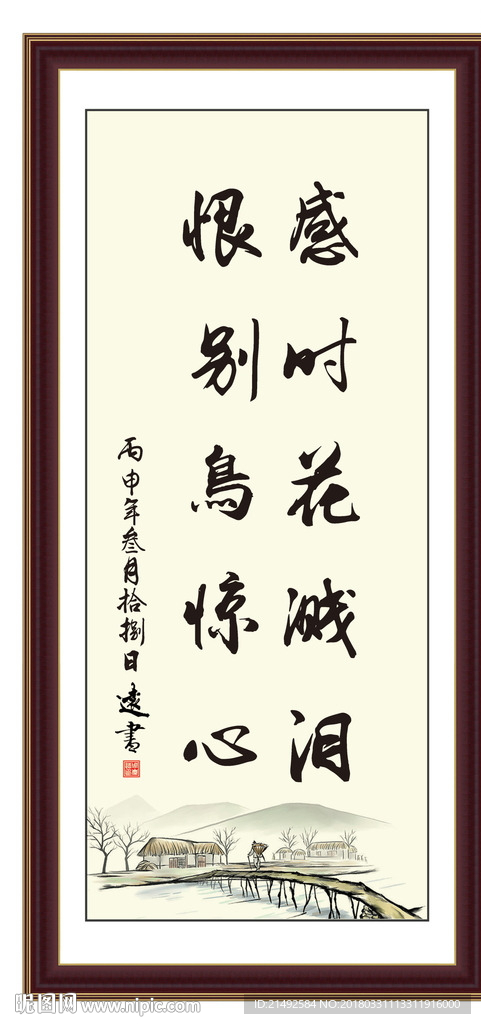 感时花溅泪
恨别鳥惊心
丙申年叁月拾捌日遠書
昵图网 www.nipic.com
ID:21492584 NO:20180331113311916000